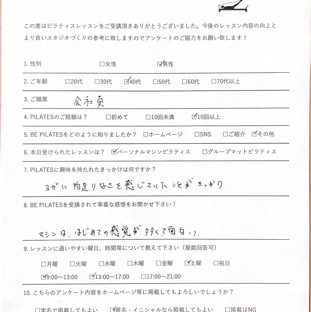 この度はピラティスレッスンをご受講頂きありがとうございました。今後のレッスン内容の向上と
より良いスタジオづくりの参考に致しますのでアンケートのご協力をお願い致します！
1. 性別 □女性 ☑男性
2. ご年齢 □20代 □30代 ☑40代 □50代 □60代 □70代以上
3. ご職業 会社員
4. PILATESのご経験は？ □初めて □10回未満 ☑10回以上
5. BE PILATESをどのように知りましたか？ □ホームページ □SNS □ご紹介 ☑その他
6. 本日受けられたレッスンは？ ☑パーソナルマシンピラティス □グループマットピラティス
7. PILATESに興味を持たれたきっかけは何ですか？
ヨガに物足りなさを感じていたことがきっかけ。
8. BE PILATESを受講されて率直な感想をお聞かせ下さい！
マシンは、はじめての感覚が多くて面白い。
9. レッスンに通いやすい曜日、時間帯について教えて下さい（複数回答可）
□月曜 □火曜 □水曜 □木曜 □金曜 ☑土曜 □祝日
☑9:00〜13:00 ☑13:00〜17:00 □17:00〜21:00
10. こちらのアンケート内容をホームページ等に掲載してもよろしいでしょうか？
□実名で掲載してもよい ☑匿名・イニシャルなら掲載してもよい □掲載はNG